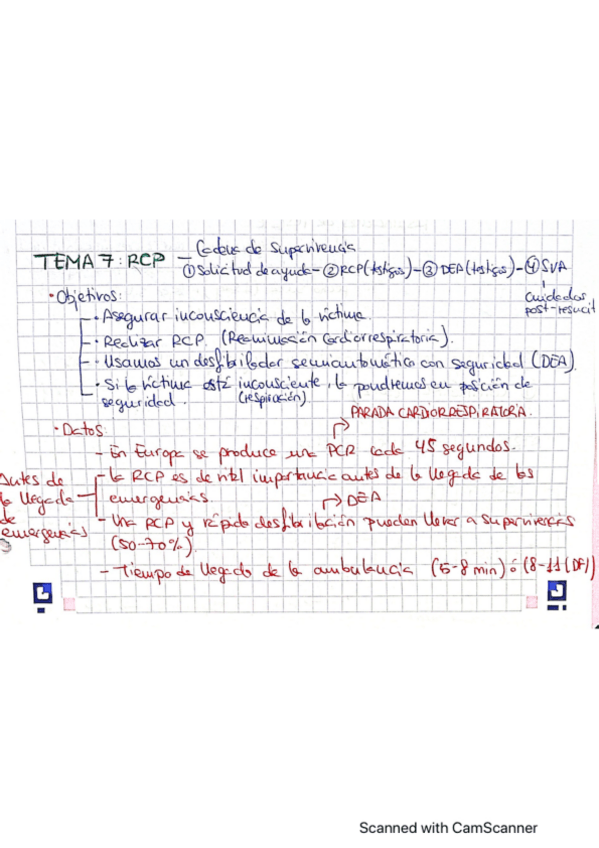 TEMA 7: RCP – Cadena de Supervivencia
① Solicitud de ayuda – ② RCP (testigos) – ③ DEA (testigos) – ④ SVA
Cuidados
post-resucit
• Objetivos:
– • Asegurar inconsciencia de la víctima.
– • Realizar RCP. (Reanimación Cardiorrespiratoria).
– • Usamos un desfibrilador semiautomático con seguridad (DEA).
– • Si la víctima está inconsciente, la pondremos en posición de
seguridad. (respiración)
PARADA CARDIORRESPIRATORIA.
• Datos:
– En Europa se produce una PCR cada 45 segundos.
Antes de la llegada de emergencias
– la RCP es de vital importancia antes de la llegada de las
emergencias.
→ DEA
– Una RCP y rápida desfibrilación pueden llevar a supervivencias
(50-70%).
– Tiempo de llegada de la ambulancia (5-8 min) ó (8-11 (DF))
Scanned with CamScanner